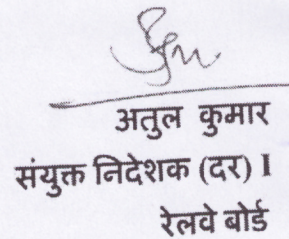 अतुल कुमार
संयुक्त निदेशक (दर) I
रेलवे बोर्ड